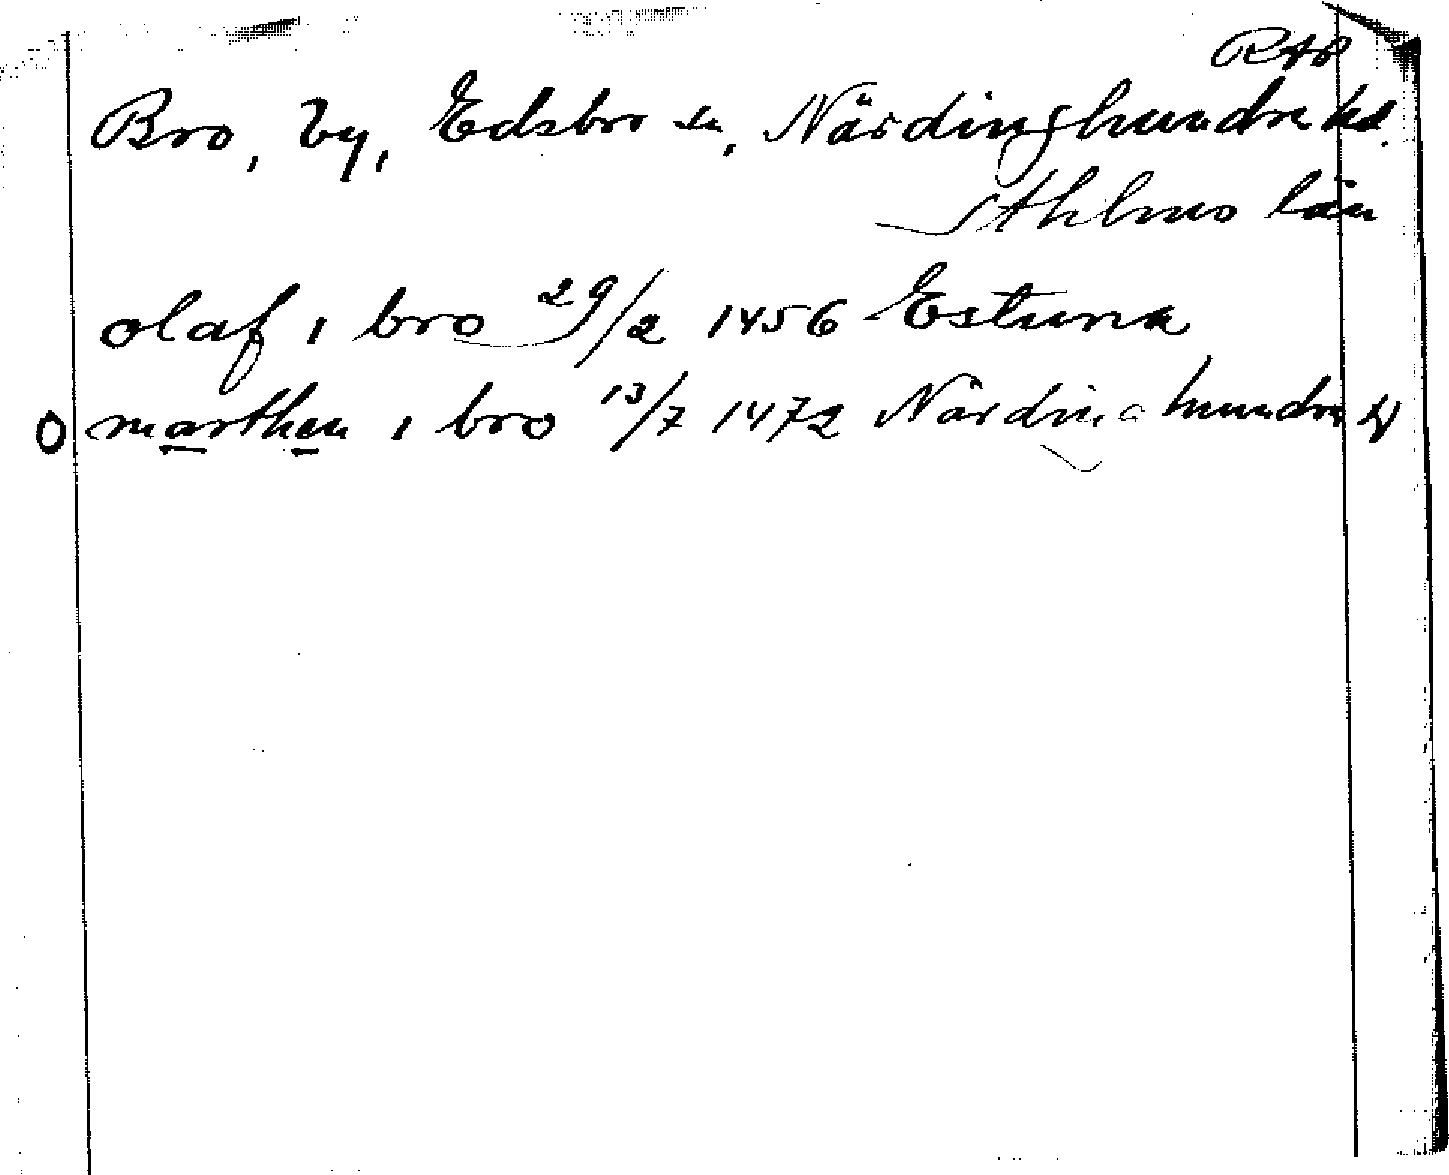 RAP
Bro, by, Edsbro sn, Närdinghundra hd.
Sthlms län
olaf i bro 29/2 1456 Estuna
O marthen i bro 13/7 1472 Närdinghundra